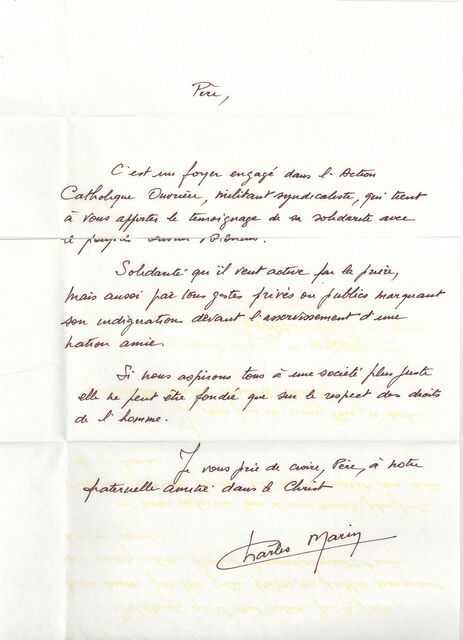 Père,
C'est un foyer engagé dans l'Action
Catholique Ouvrière, militant syndicaliste, qui tient
à vous apporter le témoignage de sa solidarité avec
le peuple
Solidarité qu'il veut active par la prière,
mais aussi par tous gestes privés ou publics marquant
son indignation devant l'asservissement d'une
nation amie.
Si nous aspirons tous à une société plus juste
elle ne peut être fondée que sur le respect des droits
de l'homme.
Je vous prie de croire, Père, à notre
fraternelle amitié dans le Christ
Charles Marin